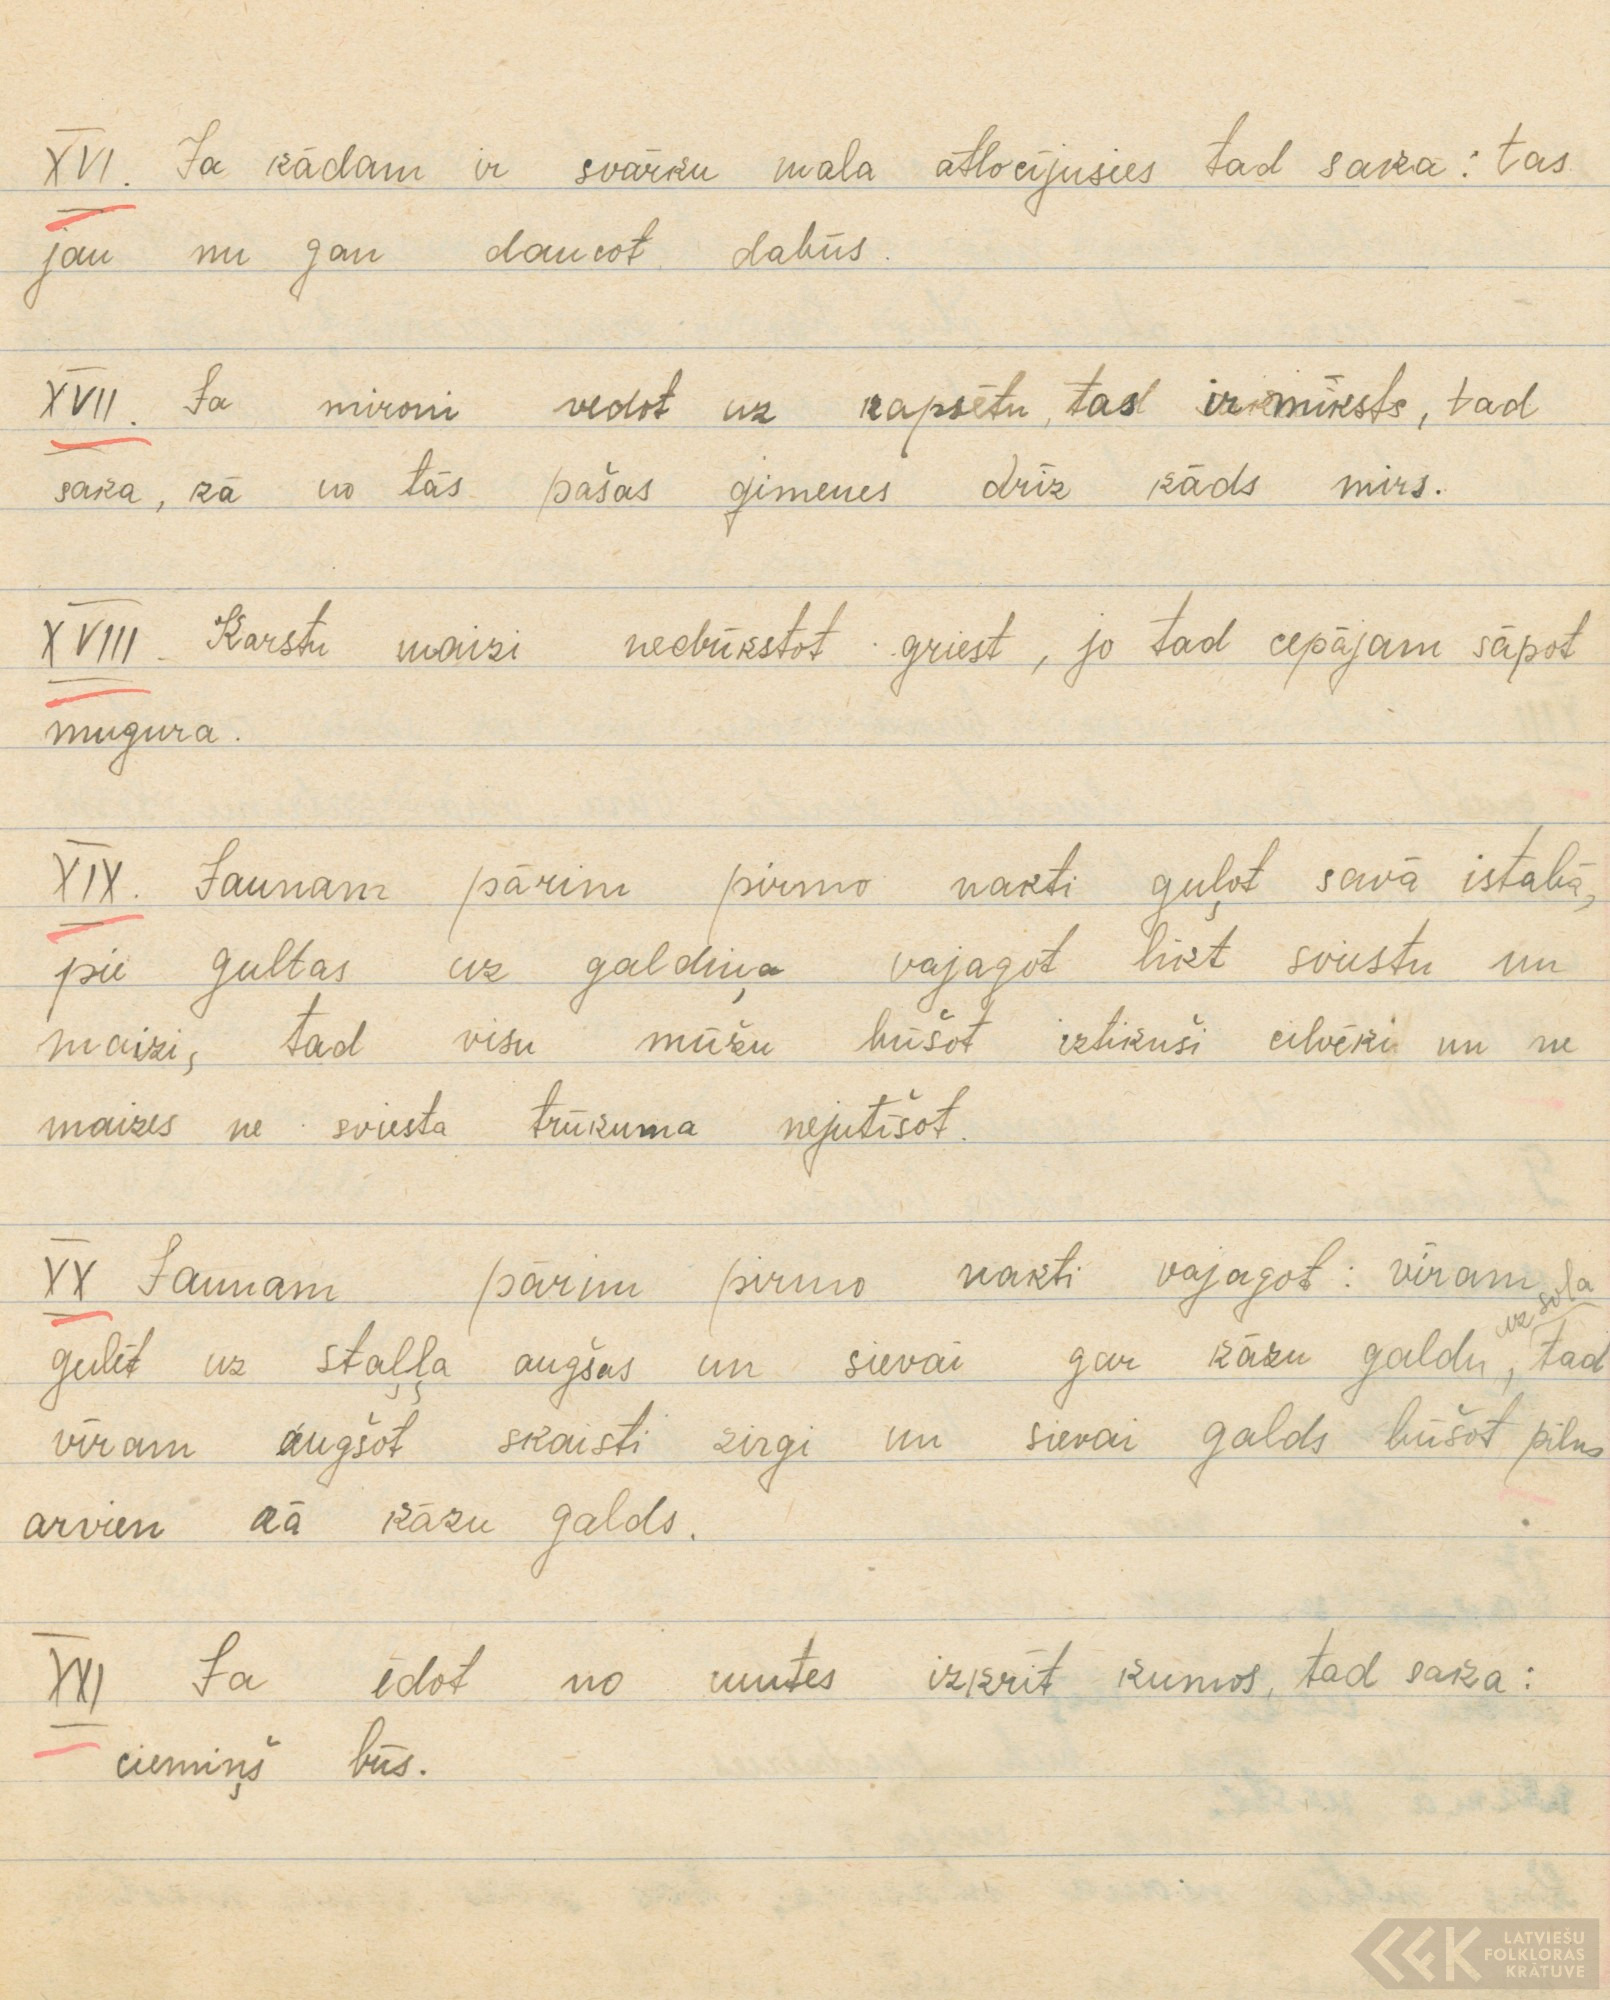 XVI. Ja kādam ir svārku mala atlocījusies tad saka: tas
jau nu gan dancot dabūs.
XVII. Ja mironi vedot uz kapsētu, tas ir mīksts, tad
saka, kā no tās pašas ģimenes drīz kāds mirs.
XVIII. Karstu maizi nedrīkstot griest, jo tad cepējam sāpot
mugura.
XIX. Jaunam pārim pirmo nakti guļot savā istabā,
pie gultas uz galdiņa vajagot likt sviestu un
maizi, tad visu mūžu būšot iztikuši cilvēki un ne
maizes ne sviesta trūkuma nejutīšot.
XX Jaunam pārim pirmo nakti vajagot: vīram
uz sola
gulēt uz staļļa augšas un sievai gar kāzu galdu, tad
vīram augšot skaisti zirgi un sievai galds būšot pilns
arvien kā kāzu galds.
XXI Ja ēdot no mutes izkrīt kumos, tad saka:
ciemiņš būs.
LATVIEŠU
FOLKLORAS
KRĀTUVE